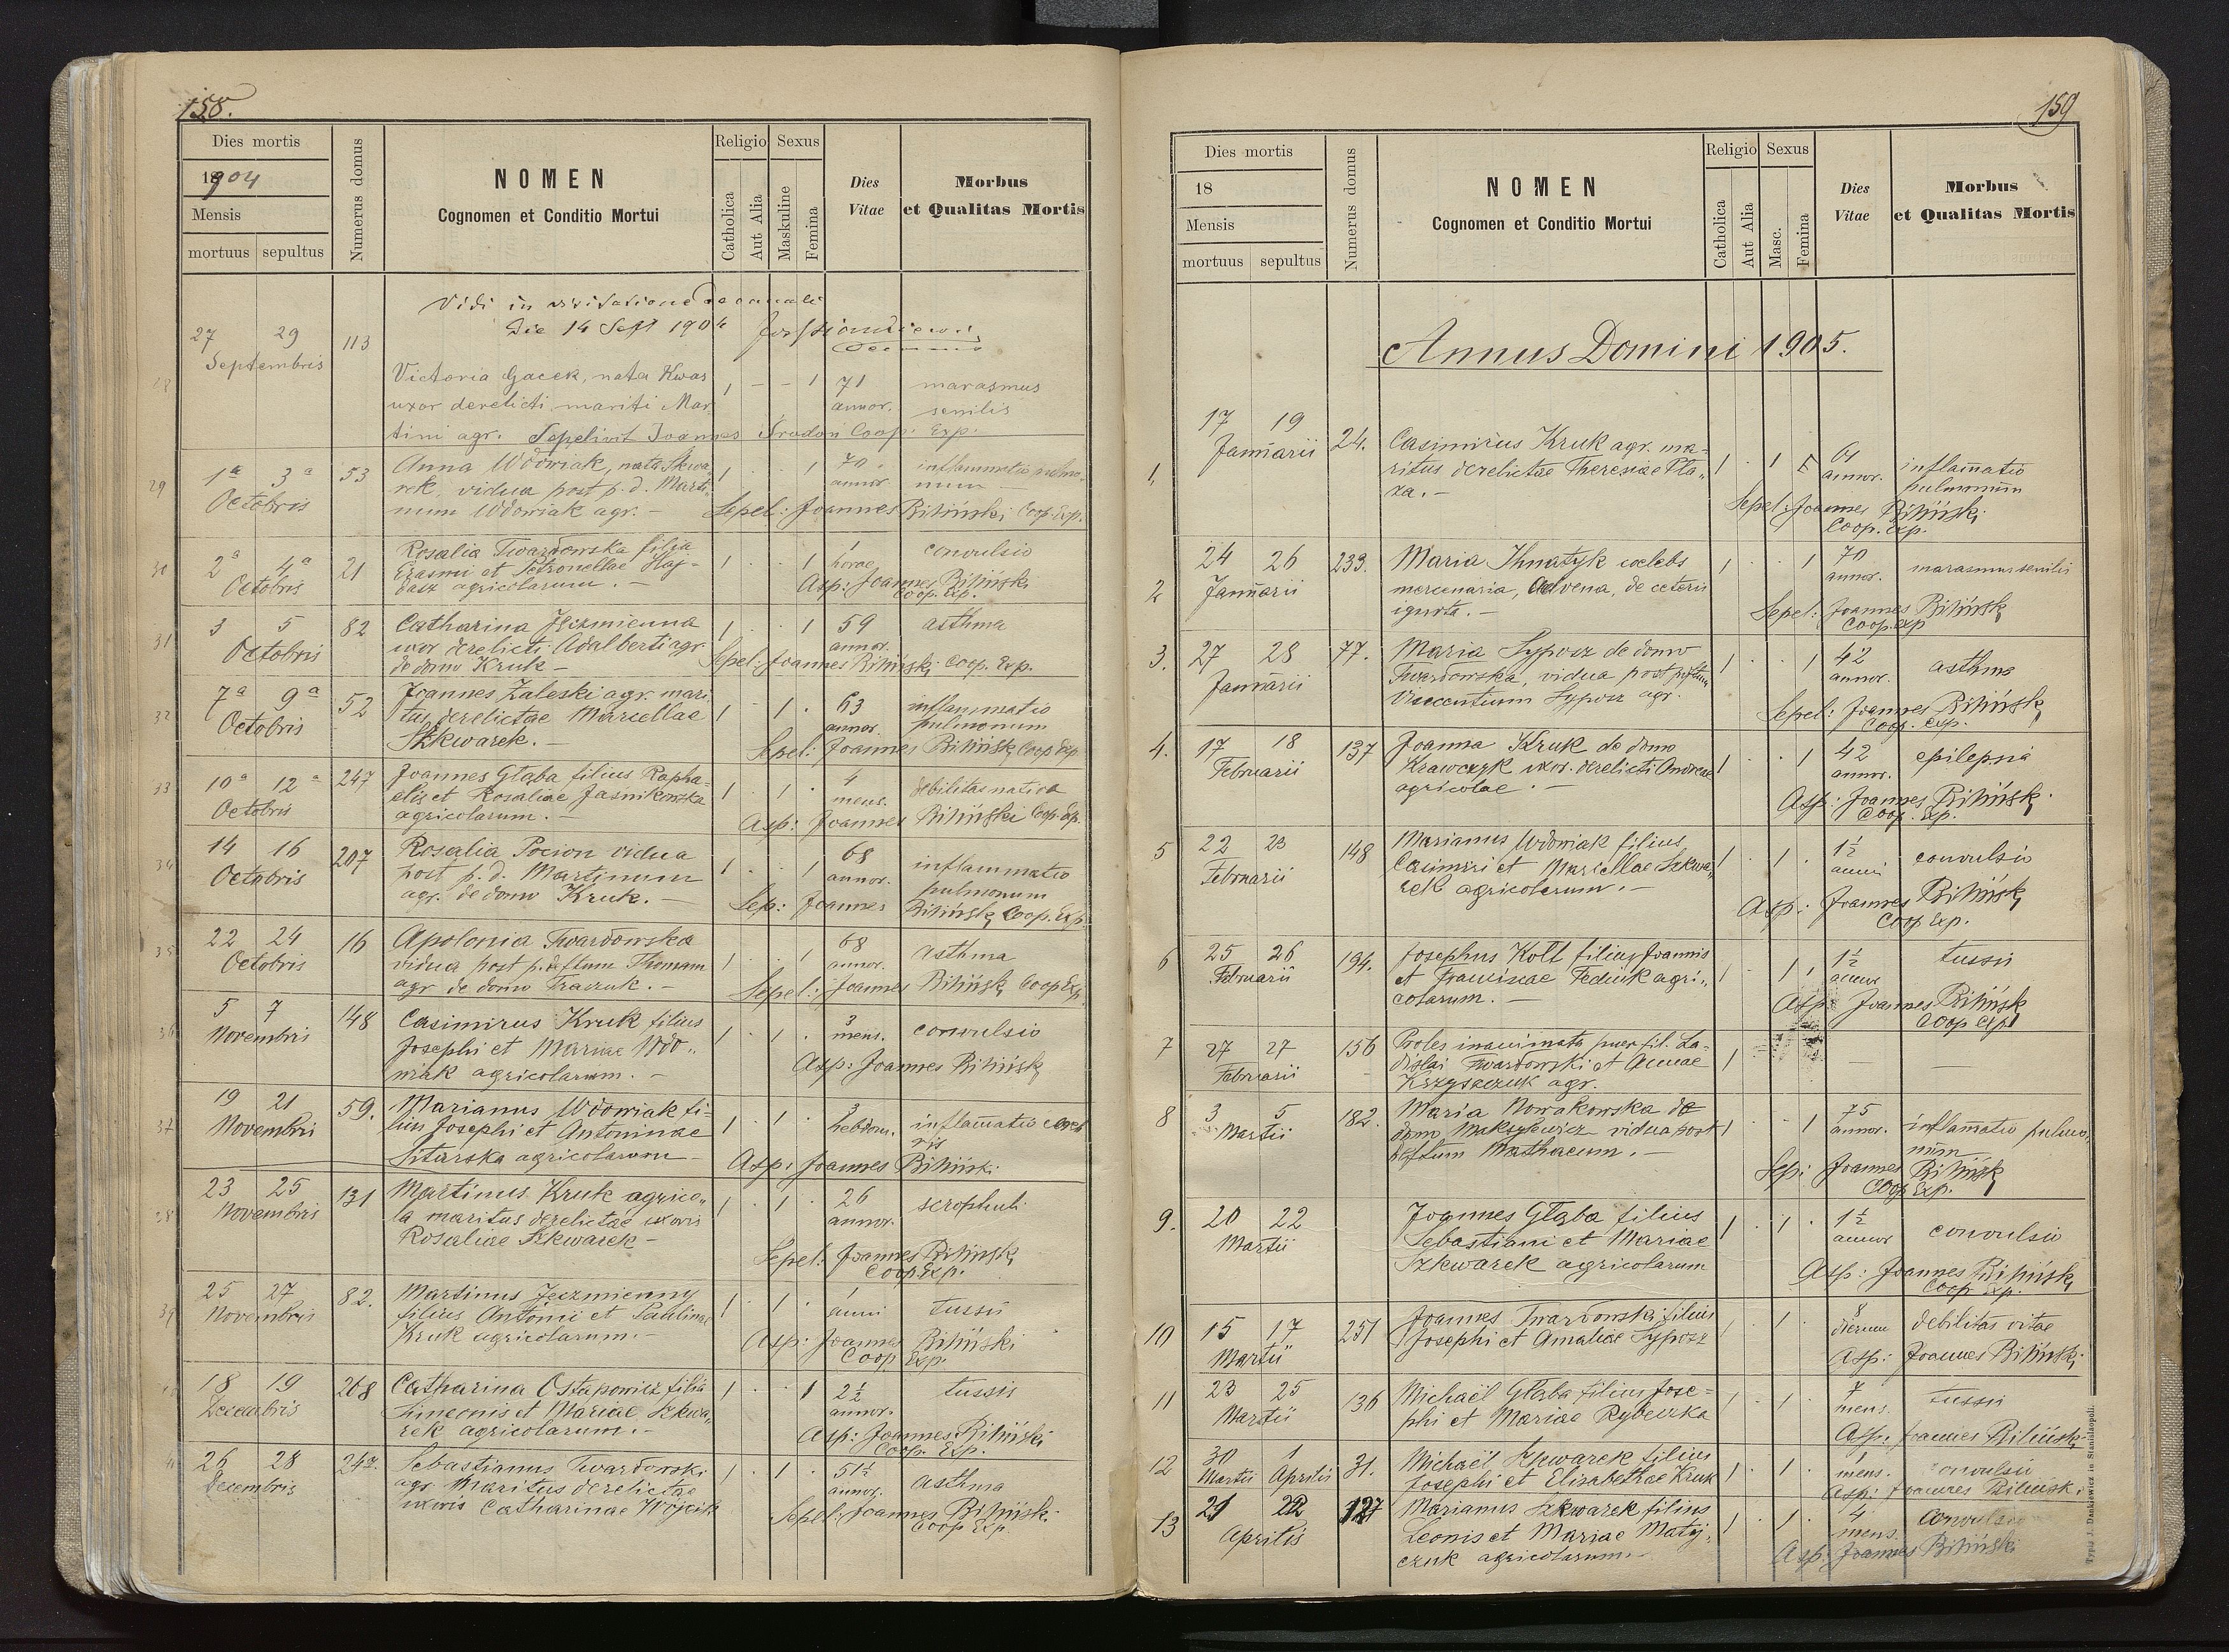 158.
Dies mortis
1904
Mensis
mortuus sepultus
Numerus domus
NOMEN
Cognomen et Conditio Mortui
Religio
Catholica
Aut Alia
Sexus
Maskuline
Femina
Dies
Vitae
Morbus
et Qualitas Mortis
Vidi in visitatione decanali
Die 14 Sept 1904
27 29 113
Septembris
Victoria Gacek, nata Kwas 1 - - 1 71 marasmus
uxor derelicti mariti Mar annor. senilis
tini agr. Sepelivit Joannes Srodoń Coop. Exp.
29 1a 3a 53 Anna Wdowiak, nata Skwa 1 1 70 inflammatio pulmo-
Octobris rek, vidua post p. d. Marti- annor. num
num Wdowiak agr. - Sepel: Joannes Biliński Coop. Exp.
30 2a 4a 21 Rosalia Twardowska filia 1 1 1 convulsio
Octobris Erasmi et Petronellae Haj- horae
dasz agricolarum. - Asp: Joannes Biliński
Coop. Exp.
31 3 5 82 Catharina Jęczmienna 1 1 59 asthma
Octobris uxor derelicti Adalberti agr. annor.
de domo Kruk - Sepel: Joannes Biliński Coop. Exp.
32 7a 9a 52 Joannes Zaleski agr. mari 1 1 63 inflammatio
Octobris tus derelictae Marcellae annor. pulmonum
Szkwarek. - Sepel: Joannes Biliński Coop. Exp.
33 10a 12a 247 Joannes Głąba filius Rapha- 1 1 4 debilitas nativa
Octobris elis et Rosaliae Jasnikowska mens.
agricolarum. - Asp: Joannes Biliński Coop. Exp.
34 14 16 207 Rosalia Pocion vidua 1 1 68 inflammatio
Octobris post p. d. Martinum annor. pulmonum
agr. de domo Kruk. - Sep: Joannes Biliński Coop. Exp.
35 22 24 16 Apolonia Twardowska 1 1 68 asthma
Octobris vidua post p. deftum Thomam annor.
agr de domo Traczuk. - Sepel: Joannes Biliński Coop Exp.
36 5 7 148 Casimirus Kruk filius 1 1 3 convulsio
Novembris Josephi et Mariae Wdo- mens.
wiak agricolarum. - Asp: Joannes Biliński
37 19 21 59. Marianus Wdowiak fi- 1 1 3 inflamatio
Novembris lius Josephi et Antoninae hebdom.
Sitarska agricolarum - Asp: Joannes Biliński
38 23 25 131 Martinus Kruk agrico- 1 1 26 scrophuli
Novembris la maritus derelictae uxoris annor.
Rosaliae Szkwarek - Sepel: Joannes Biliński
Coop Exp.
39 25 27 82. Martinus Jęczmienny 1 1 1 tussis
Novembris filius Antonii et Paulinae anni
Kruk agricolarum. - Asp: Joannes Biliński
Coop Exp.
18 19 208 Catharina Ostapowicz filia 1 1 2½ tussis
Decembris Simeonis et Mariae Szkwa- annor.
rek agricolarum. - Asp: Joannes Biliński
Coop. Exp.
26 28 247. Sebastianus Twardowski 1 1 51½ asthma
Decembris agr. maritus derelictae annor.
uxoris Catharinae Wójcik Sepel: Joannes Biliński
Coop Exp.
159
Dies mortis
18
Mensis
mortuus sepultus
Numerus domus
NOMEN
Cognomen et Conditio Mortui
Religio
Catholica
Aut Alia
Sexus
Masc.
Femina
Dies
Vitae
Morbus
et Qualitas Mortis
Annus Domini 1905.
1. 17 19 24. Casimirus Kruk agr. ma- 1 1 inflam̄atio
Januarii ritus derelictae Theresiae Pla- annor. pulmonum
za. - Sepel: Joannes Biliński
Coop. Exp.
2 24 26 233. Maria Ihnatyk coelebs 1 1 70 marasmus senilis
Januarii mercenaria, advena, de ceteris annor.
ignota. - Sepel: Joannes Biliński
Coop. Exp
3. 27 28 77. Maria Syposz de domo 1 1 42 asthma
Januarii Twardowska, vidua post p. deftum annor.
Vincentium Syposz agr. Sepel: Joannes Biliński
Coop. Exp.
4. 17 18 137 Joanna Kruk de domo 1 1 42 epilepsia
Februarii Krawczyk uxor. derelicti Andreae annor.
agricolae. - Asp: Joannes Biliński
Coop. Exp.
5 22 23 148 Marianus Wdowiak filius 1 1 1½ convulsio
Februarii Casimiri et Marcellae Szkwa- anni
rek agricolarum. - Asp: Joannes Biliński
Coop Exp.
6 25 26 194. Josephus Kott filius Joannis 1 1 1½ tussis
Februarii et Franciscae Fediuk agri-
colarum. - Asp: Joannes Biliński
Coop Exp
7 27 27 156 Proles inanimata puer fil. La- 1
Februarii dislai Twardowski et Annae
Krzyszczuk agr.
8 3 5 182. Maria Nowakowska de 1 1 75 inflam̄atio pulmo-
Martii domo Maksylewicz vidua post annor. num
deftum Mathaeum. - Sep: Joannes Biliński
Coop Exp.
9. 20 22 Joannes Głąba filius 1 1 1½ convulsio
Martii Sebastiani et Mariae annor
Szkwarek agricolarum Asp: Joannes Biliński
Coop Exp.
10 15 17 251 Joannes Twardowski filius 1 8 debilitas vitae
Martii Josephi et Amaliae Syposz dierum
Asp: Joannes Biliński
11 23 25 136 Michaël Głąba filius Jose- 1 1 7 tussis
Martii phi et Mariae Rybeczka mens.
Asp: Joannes Biliński
12 30 1 31. Michaël Szkwarek filius 1 1 1 convulsio
Martii Aprilis Josephi et Elisabethae Kruk mens.
Asp: Joannes Biliński
13 21 22 127 Marianus Szkwarek filius 1 1 4 convulsio
Aprilis Leonis et Mariae Matij- mens.
czuk agricolarum. - Asp: Joannes Biliński
Typis J. Dankiewicz in Stanislaopoli.